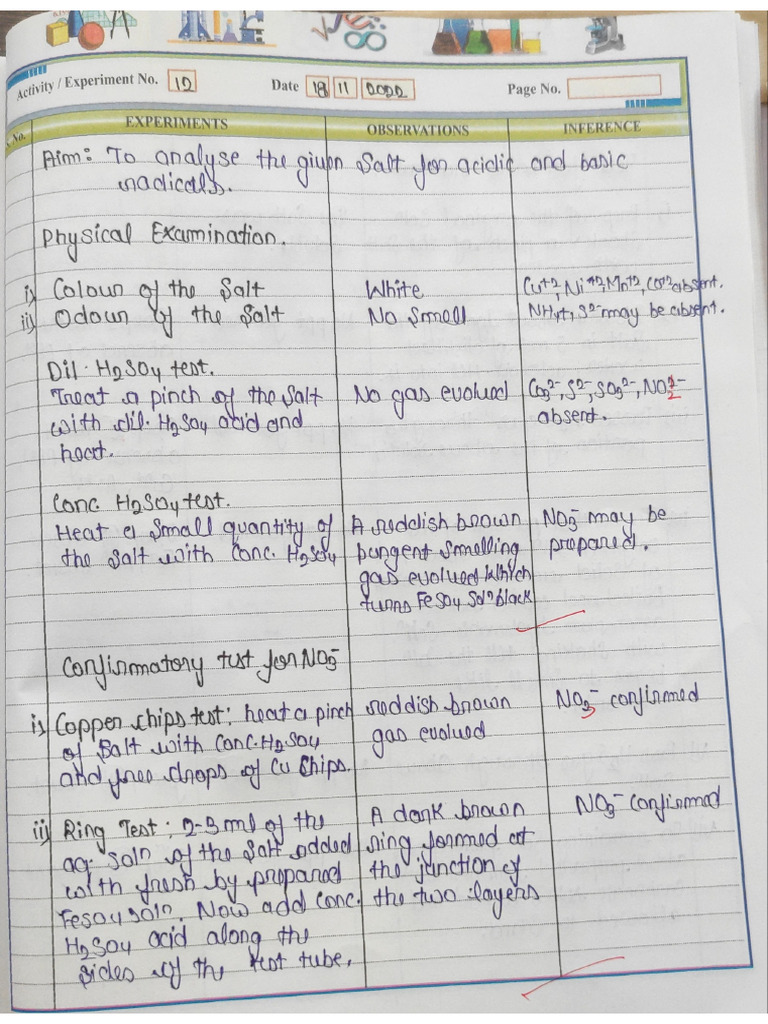 Activity / Experiment No. 12 Date 18 11 2022 Page No.
S. No. EXPERIMENTS OBSERVATIONS INFERENCE
Aim: To analyse the given salt for acidic and basic
radicals.
Physical Examination.
i) Colour of the Salt White Cu+2, Ni+2, Mn+2, Co+2 absent.
ii) Odour of the Salt No Smell NH4+, S2- may be absent.
Dil. H2SO4 test.
Treat a pinch of the Salt No gas evolved CO3 2-, S2-, SO3 2-, NO2-
with dil. H2SO4 acid and absent.
heat.
Conc H2SO4 test.
Heat a small quantity of A reddish brown NO3- may be
the salt with conc. H2SO4 pungent smelling prepared.
gas evolved which
turns FeSO4 Soln black
Confirmatory test for NO3-
i) Copper chips test: heat a pinch reddish brown NO3- confirmed
of Salt with conc. H2SO4 gas evolved
and few drops of Cu Chips.
ii) Ring Test: 2-3 ml of the A dark brown NO3- confirmed
aq. soln of the salt added ring formed at
with fresh by prepared the junction of
FeSO4 soln. Now add conc. the two layers
H2SO4 acid along the
sides of the test tube.